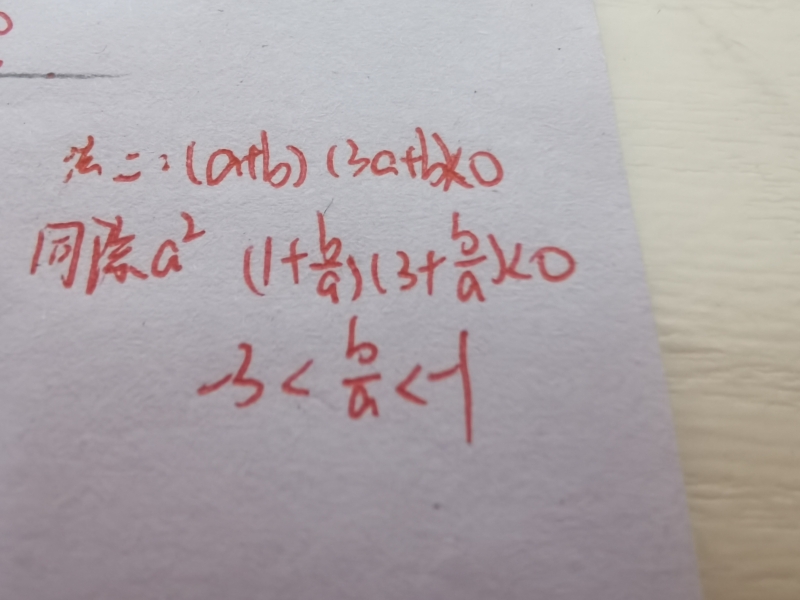 法二：(a+b)(3a+b)<0
同除a² (1+b/a)(3+b/a)<0
-3<b/a<-1